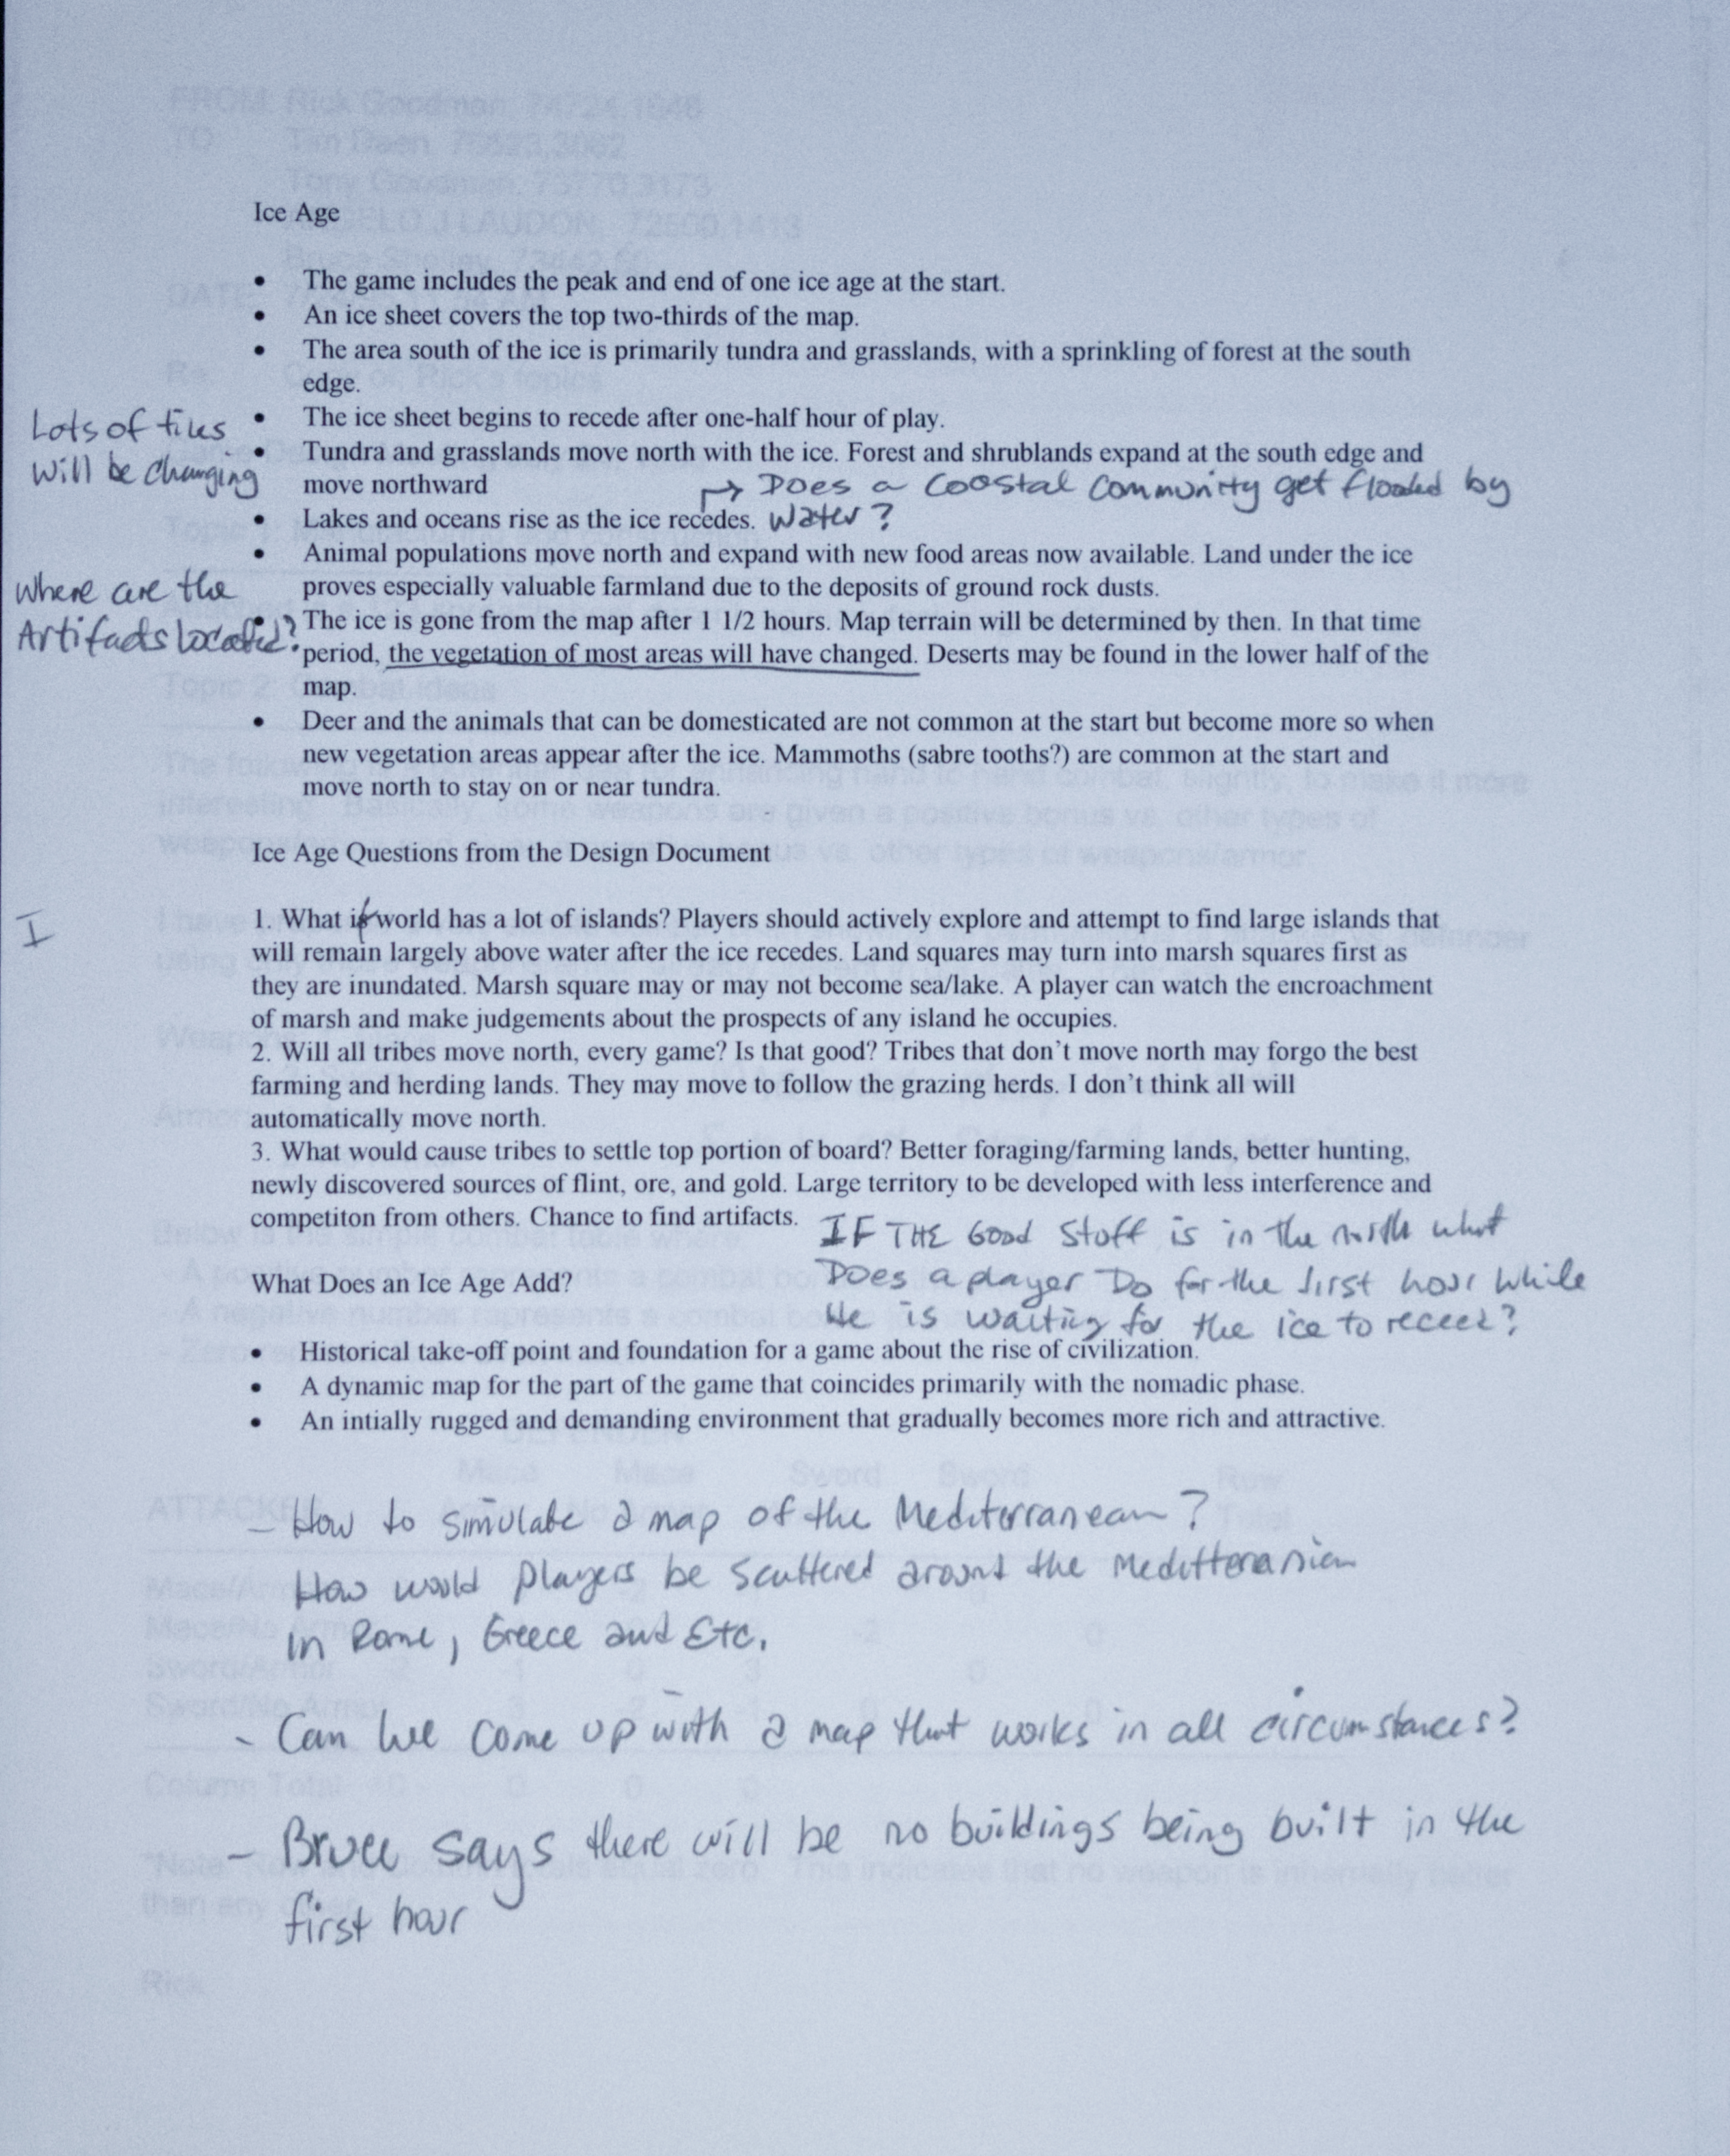 Ice Age
• The game includes the peak and end of one ice age at the start.
• An ice sheet covers the top two-thirds of the map.
• The area south of the ice is primarily tundra and grasslands, with a sprinkling of forest at the south
edge.
Lots of tiles
will be changing
• The ice sheet begins to recede after one-half hour of play.
• Tundra and grasslands move north with the ice. Forest and shrublands expand at the south edge and
move northward
→ Does a Coastal Community get flooded by
water?
• Lakes and oceans rise as the ice recedes.
• Animal populations move north and expand with new food areas now available. Land under the ice
proves especially valuable farmland due to the deposits of ground rock dusts.
Where are the
Artifacts located?
• The ice is gone from the map after 1 1/2 hours. Map terrain will be determined by then. In that time
period, the vegetation of most areas will have changed. Deserts may be found in the lower half of the
map.
• Deer and the animals that can be domesticated are not common at the start but become more so when
new vegetation areas appear after the ice. Mammoths (sabre tooths?) are common at the start and
move north to stay on or near tundra.
Ice Age Questions from the Design Document
I
1. What if world has a lot of islands? Players should actively explore and attempt to find large islands that
will remain largely above water after the ice recedes. Land squares may turn into marsh squares first as
they are inundated. Marsh square may or may not become sea/lake. A player can watch the encroachment
of marsh and make judgements about the prospects of any island he occupies.
2. Will all tribes move north, every game? Is that good? Tribes that don't move north may forgo the best
farming and herding lands. They may move to follow the grazing herds. I don't think all will
automatically move north.
3. What would cause tribes to settle top portion of board? Better foraging/farming lands, better hunting,
newly discovered sources of flint, ore, and gold. Large territory to be developed with less interference and
competiton from others. Chance to find artifacts.
IF THE Good Stuff is in the north what
Does a player Do for the first hour while
He is waiting for the ice to receed?
What Does an Ice Age Add?
• Historical take-off point and foundation for a game about the rise of civilization.
• A dynamic map for the part of the game that coincides primarily with the nomadic phase.
• An intially rugged and demanding environment that gradually becomes more rich and attractive.
- How to simulate a map of the Mediterranean?
How would players be scattered around the Meditteranian
in Rome, Greece and Etc.
- Can we come up with a map that works in all circumstances?
- Bruce says there will be no buildings being built in the
first hour